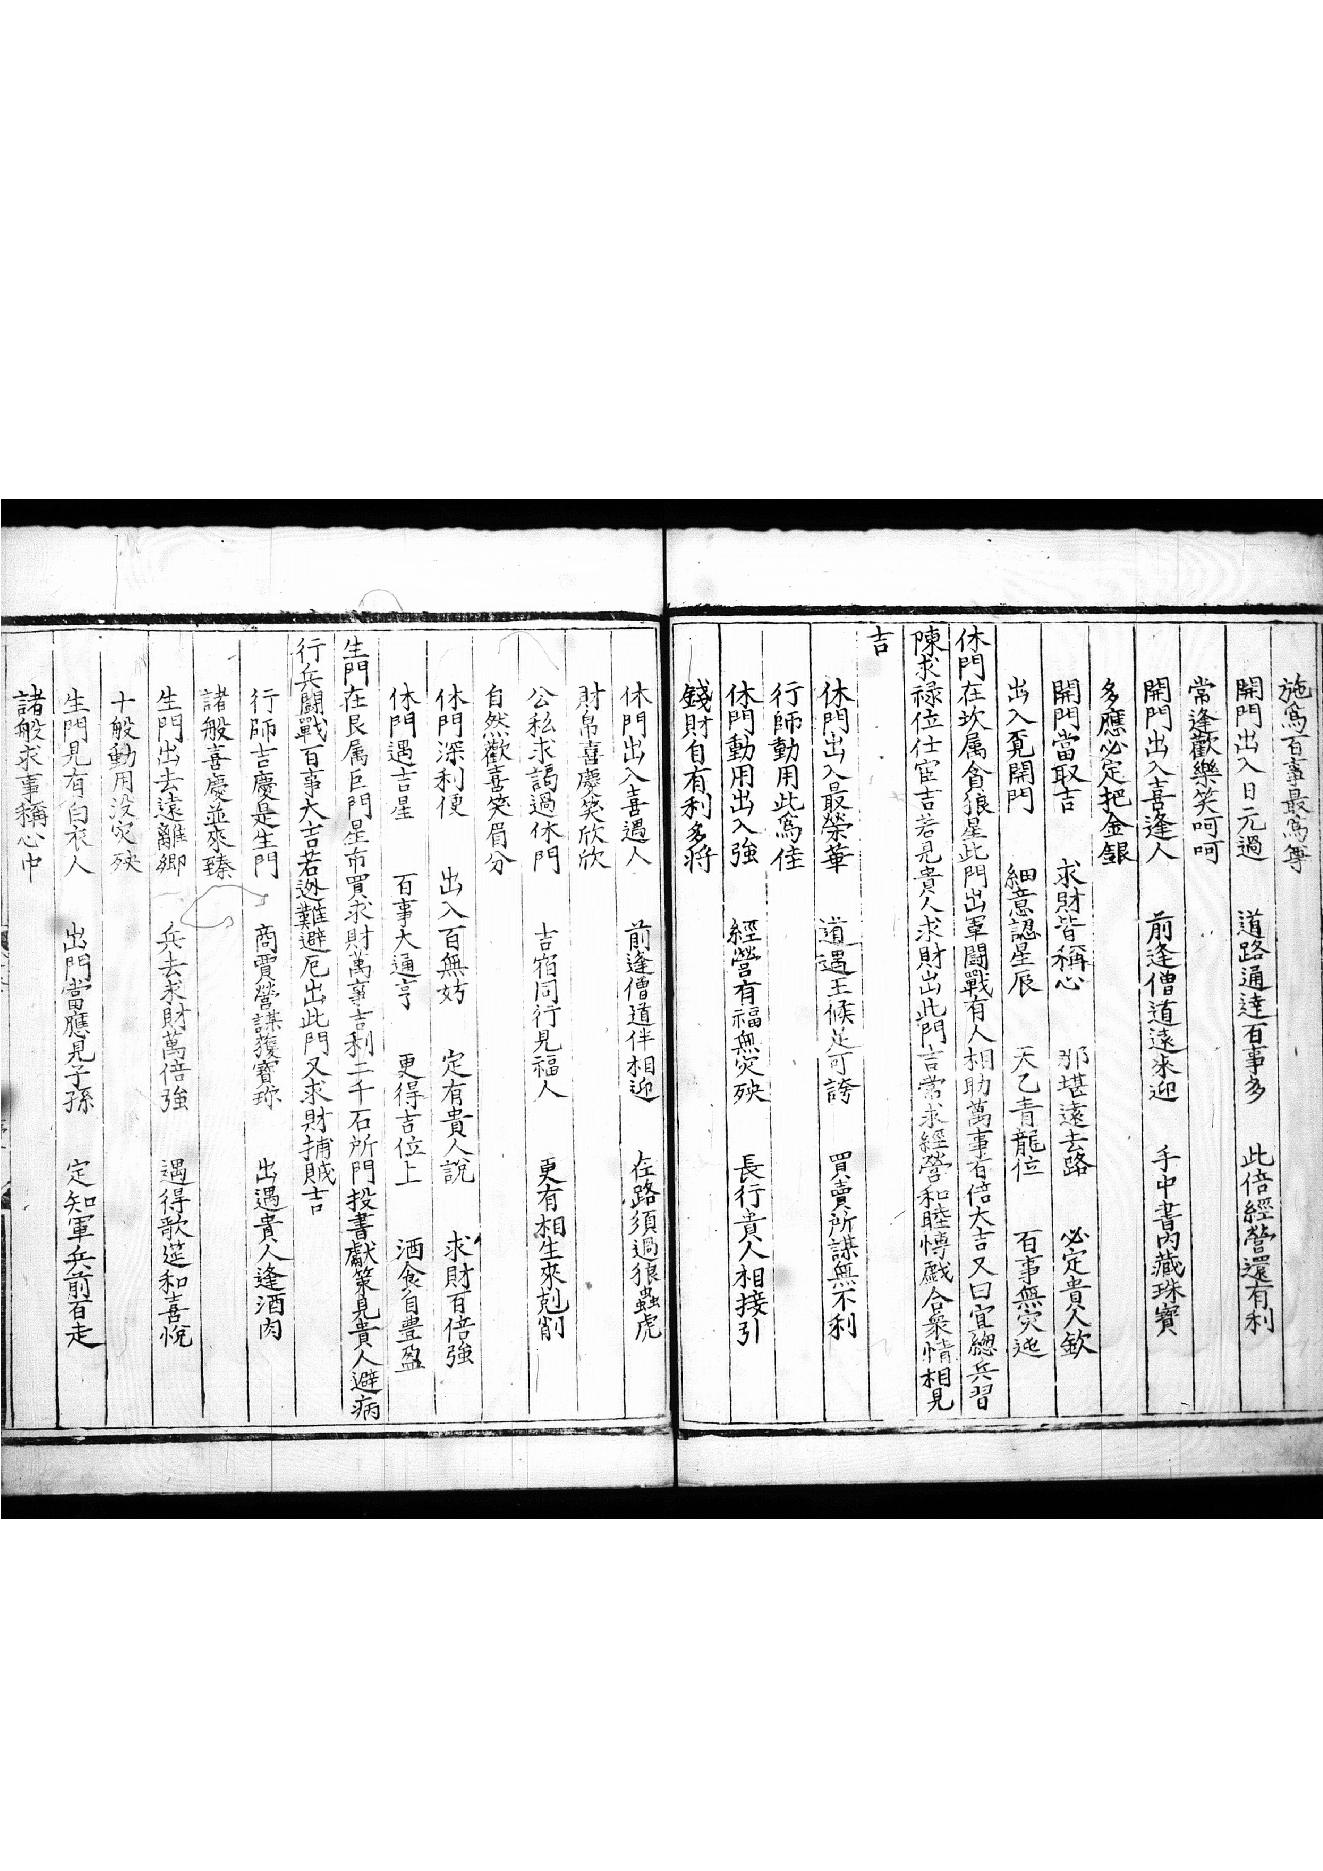 施為百事最為尊
開門出入日元過　道路通達百事多　此倍經營還有利
常逢歡樂笑呵呵
開門出入喜逢人　前逢僧道遠來迎　手中書內藏珠寶
多應必定把金銀
開門當取吉　求財皆稱心　那堪遠去路　必定貴人欽
出入覓開門　細意認星辰　天乙青龍位　百事無灾迍
休門在坎属貪狼星此門出軍鬪戰有人相助萬事有倍大吉又曰宜總兵習
陳求禄位仕宦吉若見貴人求財出此門言常求經營和睦愽戯合衆情相見
吉
休門出入最榮華　道遇王候足可誇　買賣所謀無不利
行師動用此為佳
休門動用出入強　經營有福無灾殃　長行貴人相接引
錢財自有利多將
休門出入喜遇人　前逢僧道伴相迎　在路須過狼蟲虎
財帛喜慶笑欣欣
公私求謁過休門　吉宿同行見福人　更有相生來剋削
自然歡喜笑眉分
休門深利便　出入百無妨　定有貴人說　求財百倍強
休門遇吉星　百事大通亨　更得吉位上　酒食自豊盈
生門在艮属巨門星市買求財萬事吉利二千石所門投書獻策見貴人避病
行兵鬪戰百事大吉若迯難避厄出此門又求財捕賊吉
行師吉慶是生門　商賈營謀獲寶珎　出遇貴人逢酒肉
諸般喜慶並來臻
生門出去遠離鄉　兵去求財萬倍強　遇得歌筵和喜悅
十般動用没灾殃
生門見有白衣人　出門當應見子孫　定知軍兵前百走
諸般求事稱心中